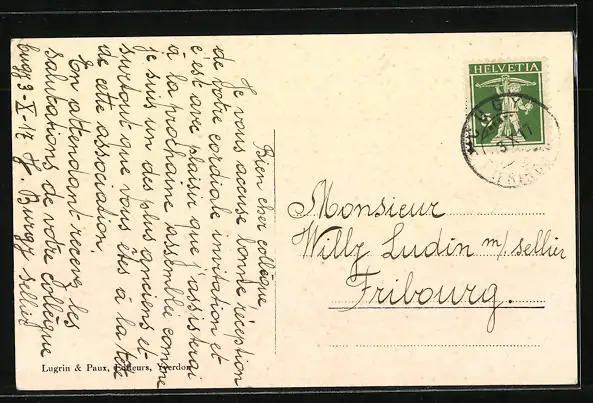 Bien cher collègue
Je vous accuse bonne réception
de votre cordiale invitation et
c'est avec plaisir que j'assisterai
à la prochaine assemblée comme
je suis un des plus anciens et
surtout que vous êtes à la tête
de cette association.
En attendant recevez les
salutations de votre collègue
Bugy 3-X-17 J. Burgy sellier
HELVETIA
Monsieur
Willy Ludin m/. sellier
Fribourg.
Lugrin & Paux, Editeurs, Yverdon